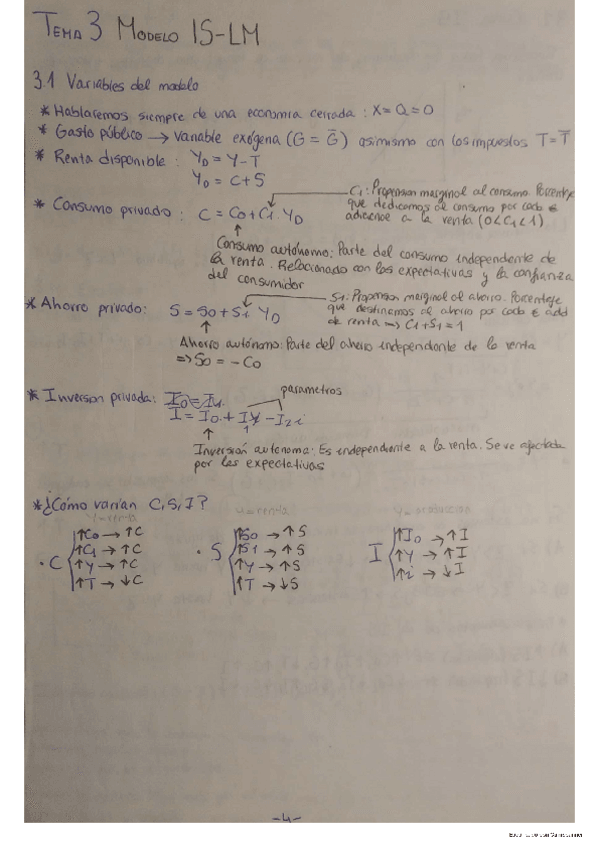 TEMA 3 MODELO IS-LM
3.1 Variables del modelo
* Hablaremos siempre de una economía cerrada: X=Q=0
* Gasto público → variable exógena (G = Ḡ) asimismo con los impuestos T=T̄
* Renta disponible: Y_D = Y-T
Y_D = C+S
C₁: Propension marginal al consumo. Porcentaje
que dedicamos al consumo por cada €
adicional a la renta (0<C₁<1)
* Consumo privado: C = C₀+C₁·Y_D
Consumo autónomo: Parte del consumo independiente de
la renta. Relacionado con las expectativas y la confianza
del consumidor
S₁: Propension marginal al ahorro. Porcentaje
que destinamos al ahorro por cada € add
de renta ⇒ C₁+S₁=1
* Ahorro privado: S = S₀+S₁ Y_D
Ahorro autónomo: Parte del ahorro independiente de la renta
⇒ S₀ = -C₀
parametros
* Inversion privada:
I = I₀ + I₁Y - I₂i
Inversión autonoma: Es independiente a la renta. Se ve afectada
por las expectativas
* ¿Cómo varían C, S, I?
Y=renta
Y=renta
Y=produccion
· C
↑C₀ → ↑C
↑C₁ → ↑C
↑Y → ↑C
↑T → ↓C
· S
↑S₀ → ↑S
↑S₁ → ↑S
↑Y → ↑S
↑T → ↓S
I
↑I₀ → ↑I
↑Y → ↑I
↑i → ↓I
-4-